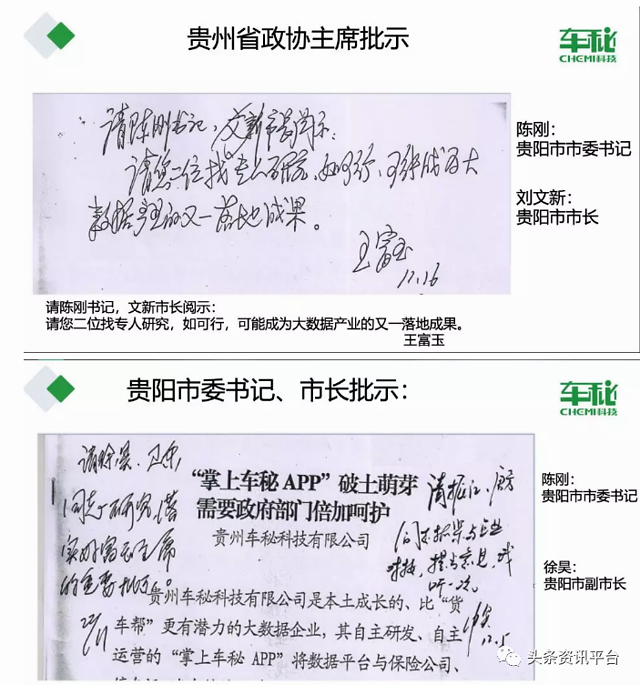 贵州省政协主席批示
车秘
CHEMI科技
请陈刚书记,文新市长阅示:
请您二位找专人研究,如可行,可能成为大
数据产业的又一落地成果。
王富玉
陈刚:
贵阳市市委书记
刘文新:
贵阳市市长
请陈刚书记,文新市长阅示:
请您二位找专人研究,如可行,可能成为大数据产业的又一落地成果。
王富玉
贵阳市委书记、市长批示:
车秘
CHEMI科技
请徐昊、
同志研究,落
实好富玉主席
的重要批示。
“掌上车秘 APP”破土萌芽
需要政府部门倍加呵护
贵州车秘科技有限公司
同志抓紧与企业
对接,提出意见,我
听一次。
12.5
贵州车秘科技有限公司是本土成长的、比“货
车帮”更有潜力的大数据企业,其自主研发、自主
运营的“掌上车秘 APP”将数据平台与保险公司、
陈刚:
贵阳市市委书记
徐昊:
贵阳市副市长
头条资讯平台